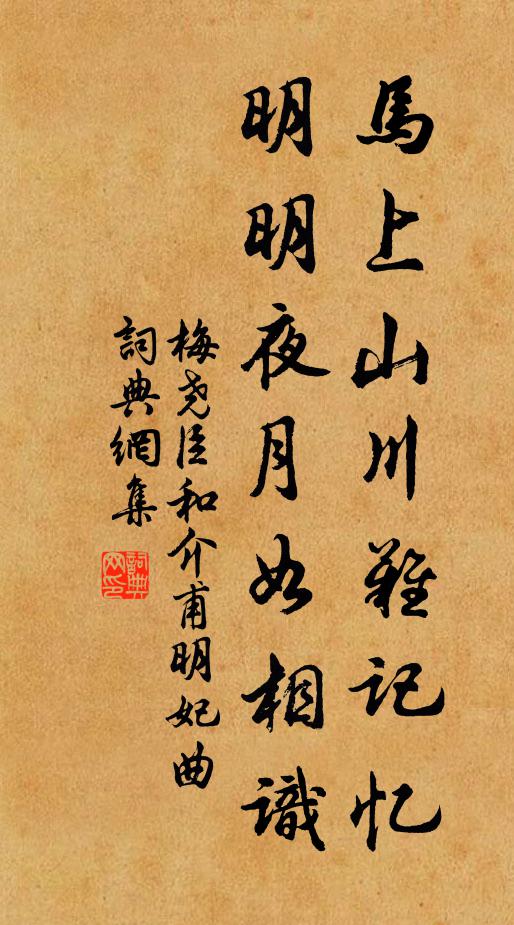 馬上山川難記忆
明明夜月如相識
梅尧臣和介甫明妃曲
詞典網集
詞典網印